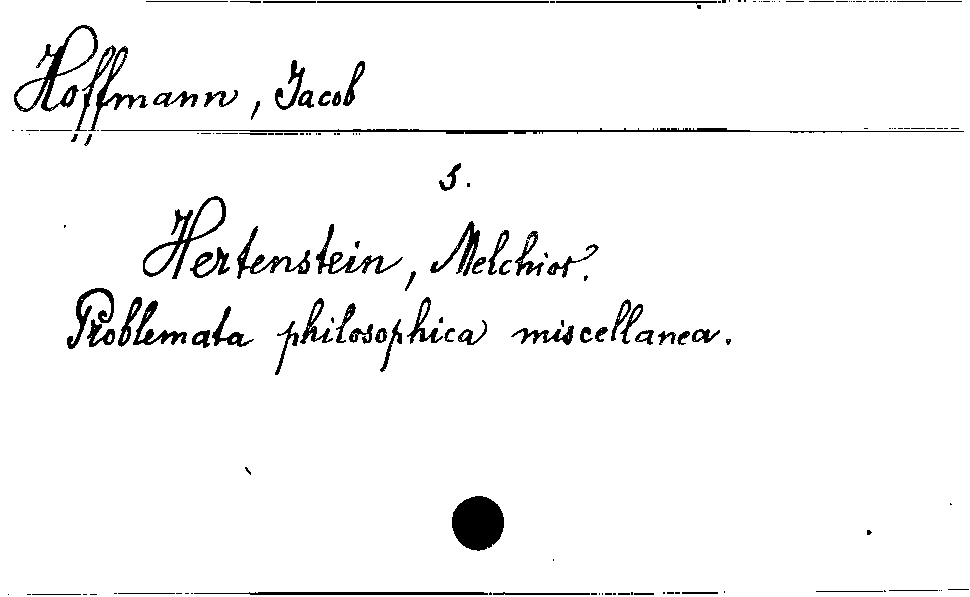 Hoffmann, Jacob
s.
Hertenstein, Melchior.
Problemata philosophica miscellanea.